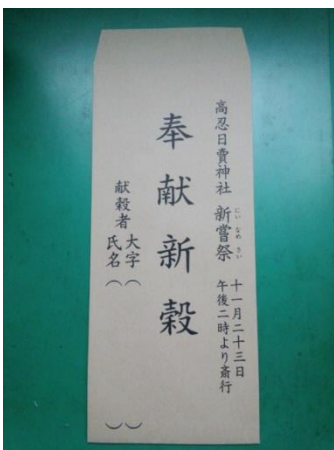 高忍日賣神社 新嘗祭
にいなめさい
十一月二十三日
午後二時より斎行
奉献新穀
献穀者
大字（　　）
氏名（　　）